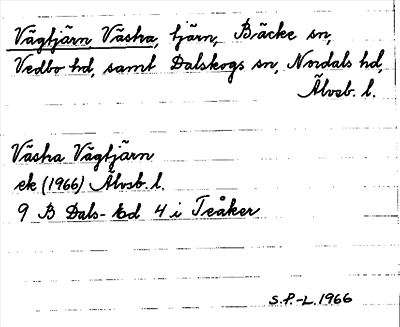 Vägtjärn, Västra, tjärn, Bäcke sn,
Vedbo hd, samt Dalskogs sn, Nordals hd,
Älvsb. l.
Västra Vägtjärn
ek (1966) Älvsb. l.
9 B Dals-Ed 4 i Teåker
S.P.-L. 1966